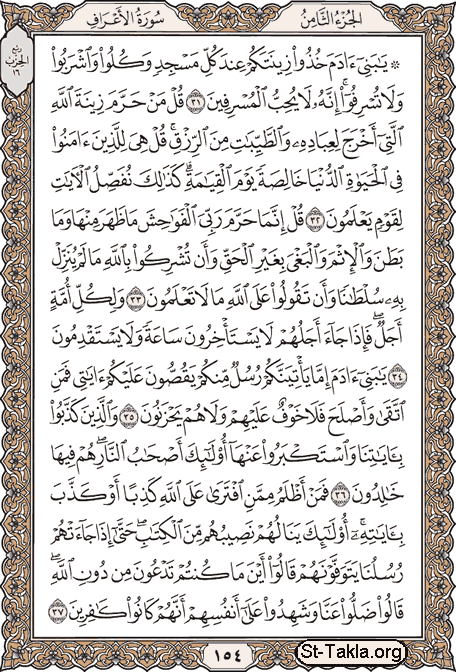 الجزء الثامن
سورة الأعراف
ربع
الحزب
١٦
۞ يَـٰبَنِىٓ ءَادَمَ خُذُوا۟ زِينَتَكُمْ عِندَ كُلِّ مَسْجِدٍ وَكُلُوا۟ وَٱشْرَبُوا۟
وَلَا تُسْرِفُوٓا۟ ۚ إِنَّهُۥ لَا يُحِبُّ ٱلْمُسْرِفِينَ ٣١ قُلْ مَنْ حَرَّمَ زِينَةَ ٱللَّهِ
ٱلَّتِىٓ أَخْرَجَ لِعِبَادِهِۦ وَٱلطَّيِّبَـٰتِ مِنَ ٱلرِّزْقِ ۚ قُلْ هِىَ لِلَّذِينَ ءَامَنُوا۟
فِى ٱلْحَيَوٰةِ ٱلدُّنْيَا خَالِصَةً يَوْمَ ٱلْقِيَـٰمَةِ ۗ كَذَٰلِكَ نُفَصِّلُ ٱلْـَٔايَـٰتِ
لِقَوْمٍ يَعْلَمُونَ ٣٢ قُلْ إِنَّمَا حَرَّمَ رَبِّىَ ٱلْفَوَٰحِشَ مَا ظَهَرَ مِنْهَا وَمَا
بَطَنَ وَٱلْإِثْمَ وَٱلْبَغْىَ بِغَيْرِ ٱلْحَقِّ وَأَن تُشْرِكُوا۟ بِٱللَّهِ مَا لَمْ يُنَزِّلْ
بِهِۦ سُلْطَـٰنًا وَأَن تَقُولُوا۟ عَلَى ٱللَّهِ مَا لَا تَعْلَمُونَ ٣٣ وَلِكُلِّ أُمَّةٍ
أَجَلٌ ۖ فَإِذَا جَآءَ أَجَلُهُمْ لَا يَسْتَأْخِرُونَ سَاعَةً ۖ وَلَا يَسْتَقْدِمُونَ
٣٤ يَـٰبَنِىٓ ءَادَمَ إِمَّا يَأْتِيَنَّكُمْ رُسُلٌ مِّنكُمْ يَقُصُّونَ عَلَيْكُمْ ءَايَـٰتِى ۙ فَمَنِ
ٱتَّقَىٰ وَأَصْلَحَ فَلَا خَوْفٌ عَلَيْهِمْ وَلَا هُمْ يَحْزَنُونَ ٣٥ وَٱلَّذِينَ كَذَّبُوا۟
بِـَٔايَـٰتِنَا وَٱسْتَكْبَرُوا۟ عَنْهَآ أُو۟لَـٰٓئِكَ أَصْحَـٰبُ ٱلنَّارِ ۖ هُمْ فِيهَا
خَـٰلِدُونَ ٣٦ فَمَنْ أَظْلَمُ مِمَّنِ ٱفْتَرَىٰ عَلَى ٱللَّهِ كَذِبًا أَوْ كَذَّبَ
بِـَٔايَـٰتِهِۦٓ ۚ أُو۟لَـٰٓئِكَ يَنَالُهُمْ نَصِيبُهُم مِّنَ ٱلْكِتَـٰبِ ۖ حَتَّىٰٓ إِذَا جَآءَتْهُمْ
رُسُلُنَا يَتَوَفَّوْنَهُمْ قَالُوٓا۟ أَيْنَ مَا كُنتُمْ تَدْعُونَ مِن دُونِ ٱللَّهِ ۖ
قَالُوا۟ ضَلُّوا۟ عَنَّا وَشَهِدُوا۟ عَلَىٰٓ أَنفُسِهِمْ أَنَّهُمْ كَانُوا۟ كَـٰفِرِينَ ٣٧
١٥٤
St-Takla.org